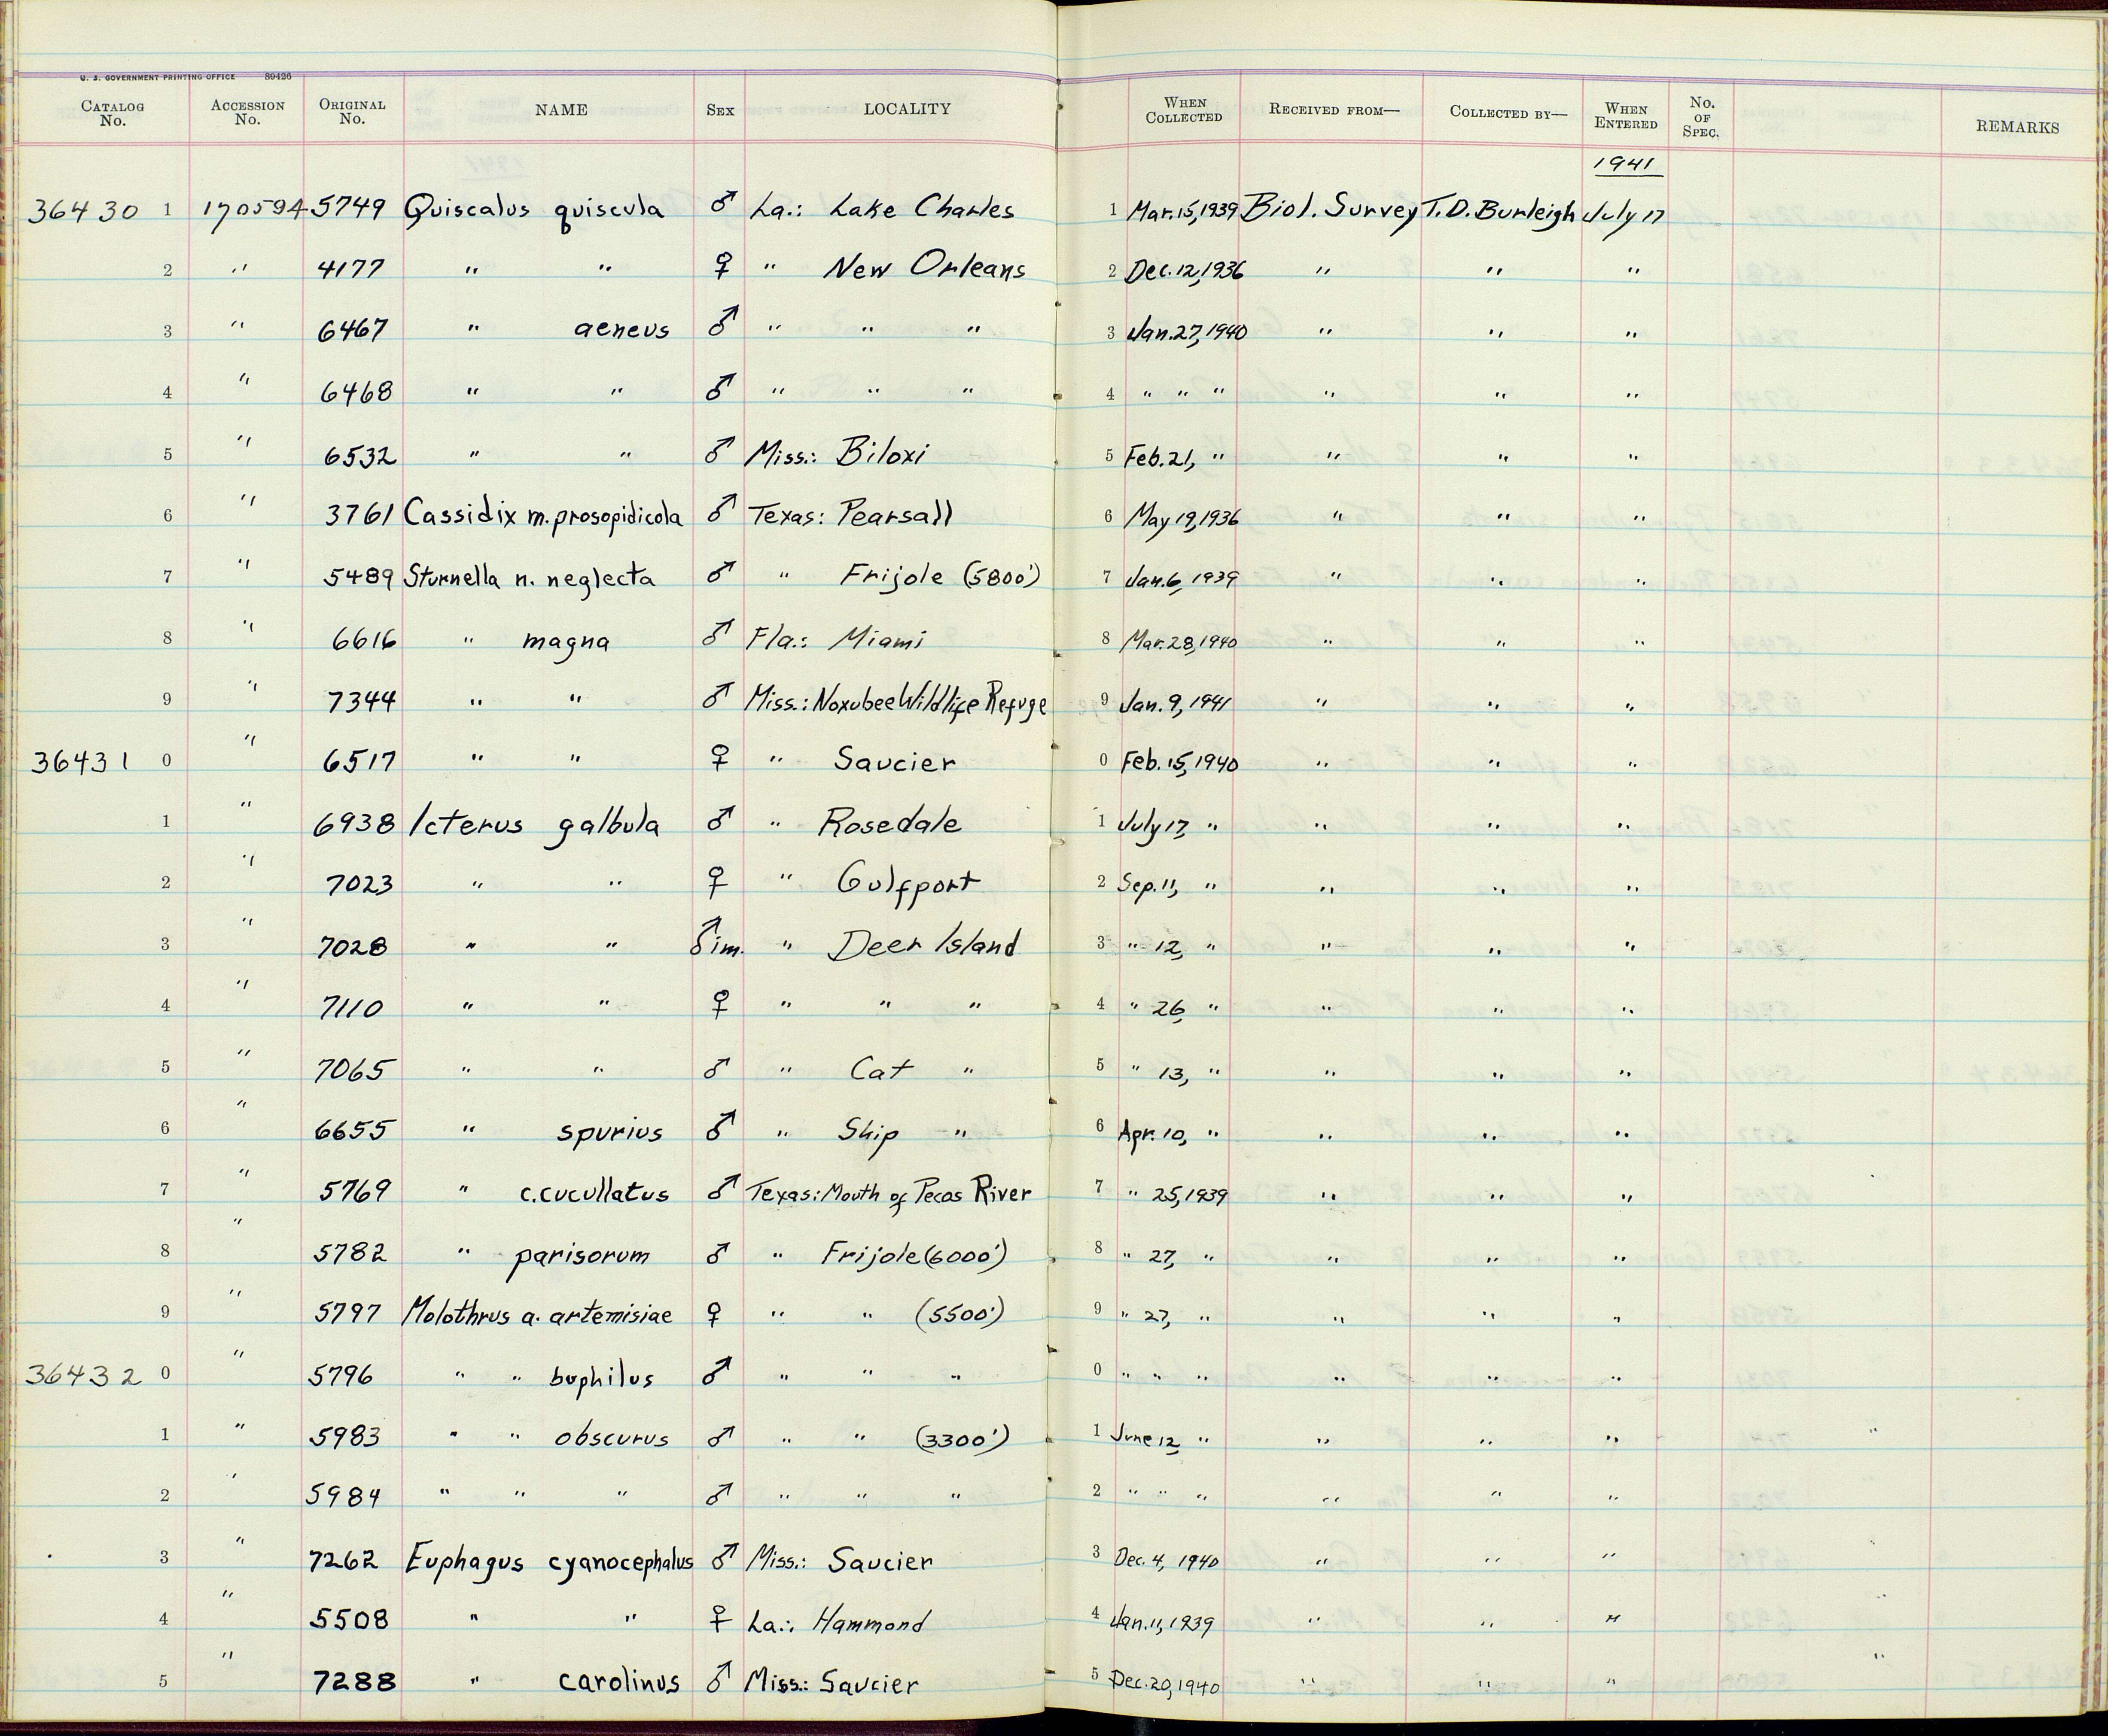 U. S. GOVERNMENT PRINTING OFFICE 89426
CATALOG No. ACCESSION No. ORIGINAL No. NAME SEX LOCALITY WHEN COLLECTED RECEIVED FROM— COLLECTED BY— WHEN ENTERED No. OF SPEC. REMARKS
1941
36430 1 170594 5749 Quiscalus quiscula ♂ La.: Lake Charles 1 Mar.15,1939 Biol. Survey T.D. Burleigh July 17
2 " 4177 " " ♀ " New Orleans 2 Dec.12,1936 " " "
3 " 6467 " aeneus ♂ " " " 3 Jan.27,1940 " " "
4 " 6468 " " ♂ " " " 4 " " " " " "
5 " 6532 " " ♂ Miss.: Biloxi 5 Feb.21, " " " "
6 " 3761 Cassidix m. prosopidicola ♂ Texas: Pearsall 6 May 19,1936 " " "
7 " 5489 Sturnella n. neglecta ♂ " Frijole (5800') 7 Jan.6, 1939 " " "
8 " 6616 " magna ♂ Fla.: Miami 8 Mar.28,1940 " " "
9 " 7344 " " ♂ Miss.: Noxubee Wildlife Refuge 9 Jan. 9, 1941 " " "
36431 0 " 6517 " " ♀ " Saucier 0 Feb. 15, 1940 " " "
1 " 6938 Icterus galbula ♂ " Rosedale 1 July 17, " " " "
2 " 7023 " " ♀ " Gulfport 2 Sep. 11, " " " "
3 " 7028 " " ♂ im. " Deer Island 3 " 12, " " " "
4 " 7110 " " ♀ " " " 4 " 26, " " " "
5 " 7065 " " ♂ " Cat " 5 " 13, " " " "
6 " 6655 " spurius ♂ " Ship " 6 Apr. 10, " " " "
7 " 5769 " c. cucullatus ♂ Texas: Mouth of Pecos River 7 " 25, 1939 " " "
8 " 5782 " parisorum ♂ " Frijole (6000') 8 " 27, " " " "
9 " 5797 Molothrus a. artemisiae ♀ " " (5500') 9 " 27, " " " "
36432 0 " 5796 " " buphilus ♂ " " " 0 " " " " " "
1 " 5983 " " obscurus ♂ " " (3300') 1 June 12, " " " "
2 " 5984 " " " ♂ " " " 2 " " " " " "
3 " 7262 Euphagus cyanocephalus ♂ Miss.: Saucier 3 Dec. 4, 1940 " " "
4 " 5508 " " ♀ La.: Hammond 4 Jan. 11, 1939 " " "
5 " 7288 " carolinus ♂ Miss.: Saucier 5 Dec. 20, 1940 " " "